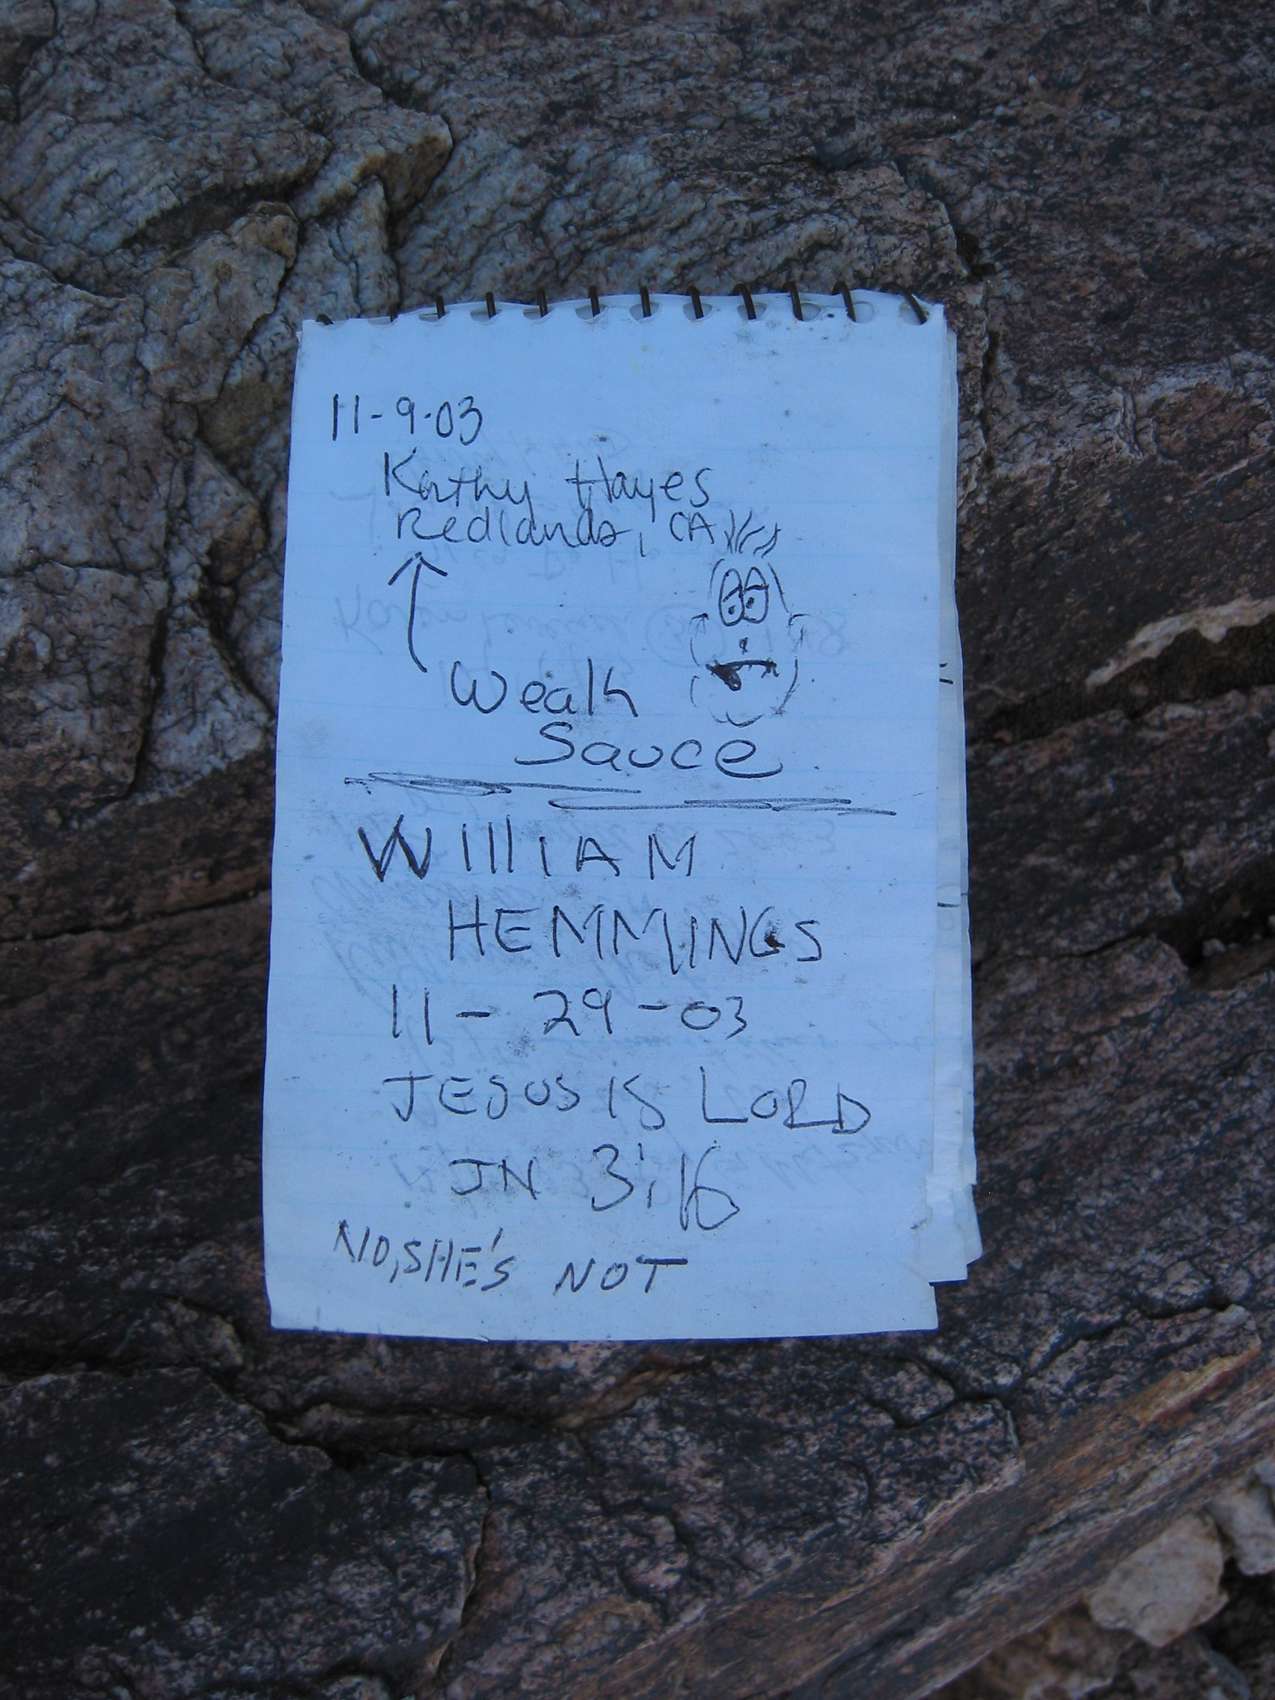 11-9-03
Kathy Hayes
Redlands, CA
Weak
Sauce
WILLIAM
HEMMINGS
11-29-03
JESUS IS LORD
JN 3:16
NO, SHE'S NOT